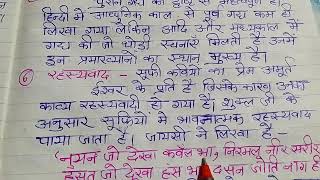 हिन्दी में आधुनिक काल से पूर्व गद्य कम ही
लिखा गया लेकिन आदि और मध्यकाल में
गद्य की जो थोड़ी रचनाएं मिलती हैं उनमें
इन प्रमाख्यानों का स्थान मुख्य है।
⑥ रहस्यवाद - सूफी कवियों का प्रेम अमूर्त
ईश्वर के प्रति है जिसके कारण उनका
काव्य रहस्यवादी हो गया है। शुक्ल जी के
अनुसार सूफियों में भावनात्मक रहस्यवाद
पाया जाता है। जायसी ने लिखा है -
"नयन जो देखा कवँल भा, निरमल नीर सरीर
हंसत जो देखा हंस भा दसन जोति नग ही